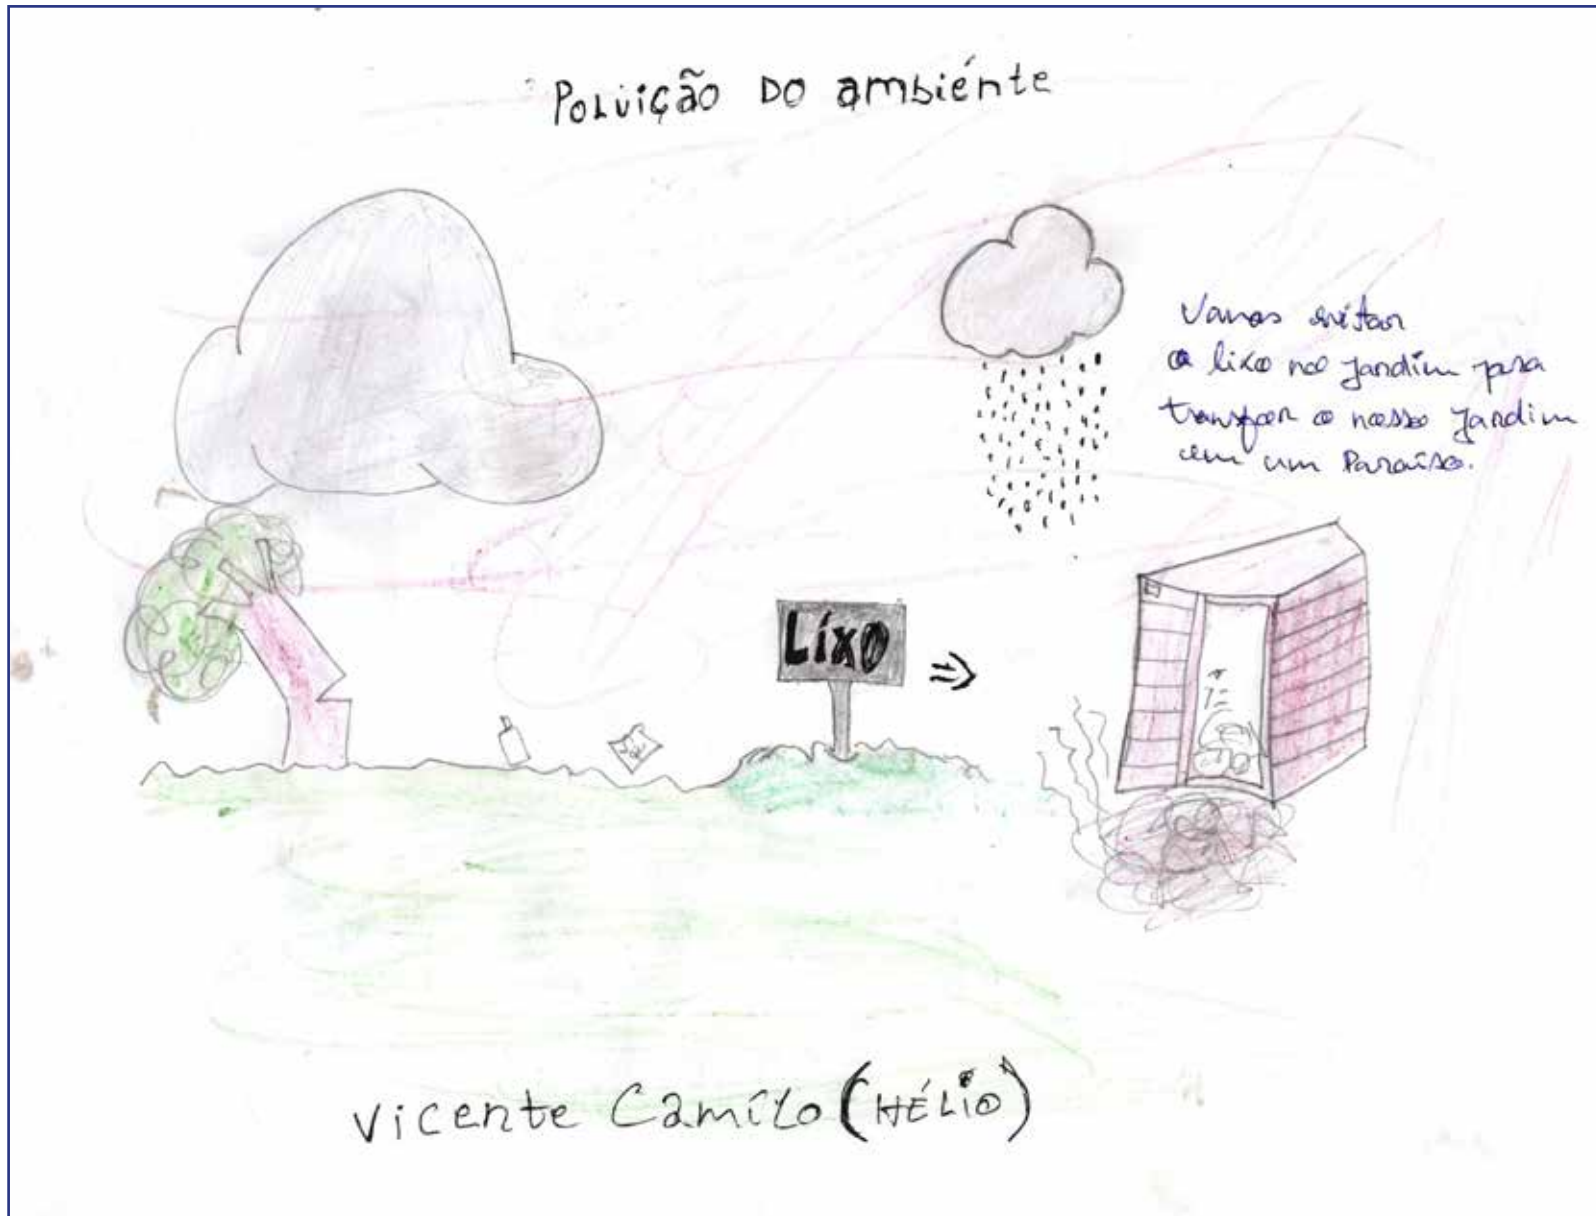 Poluição Do ambiénte
Vamos evitar
o lixo no Jardim para
transfor o nosso Jardim
em um Paraíso.
Lixo
Vicente Camilo (HÉLIO)